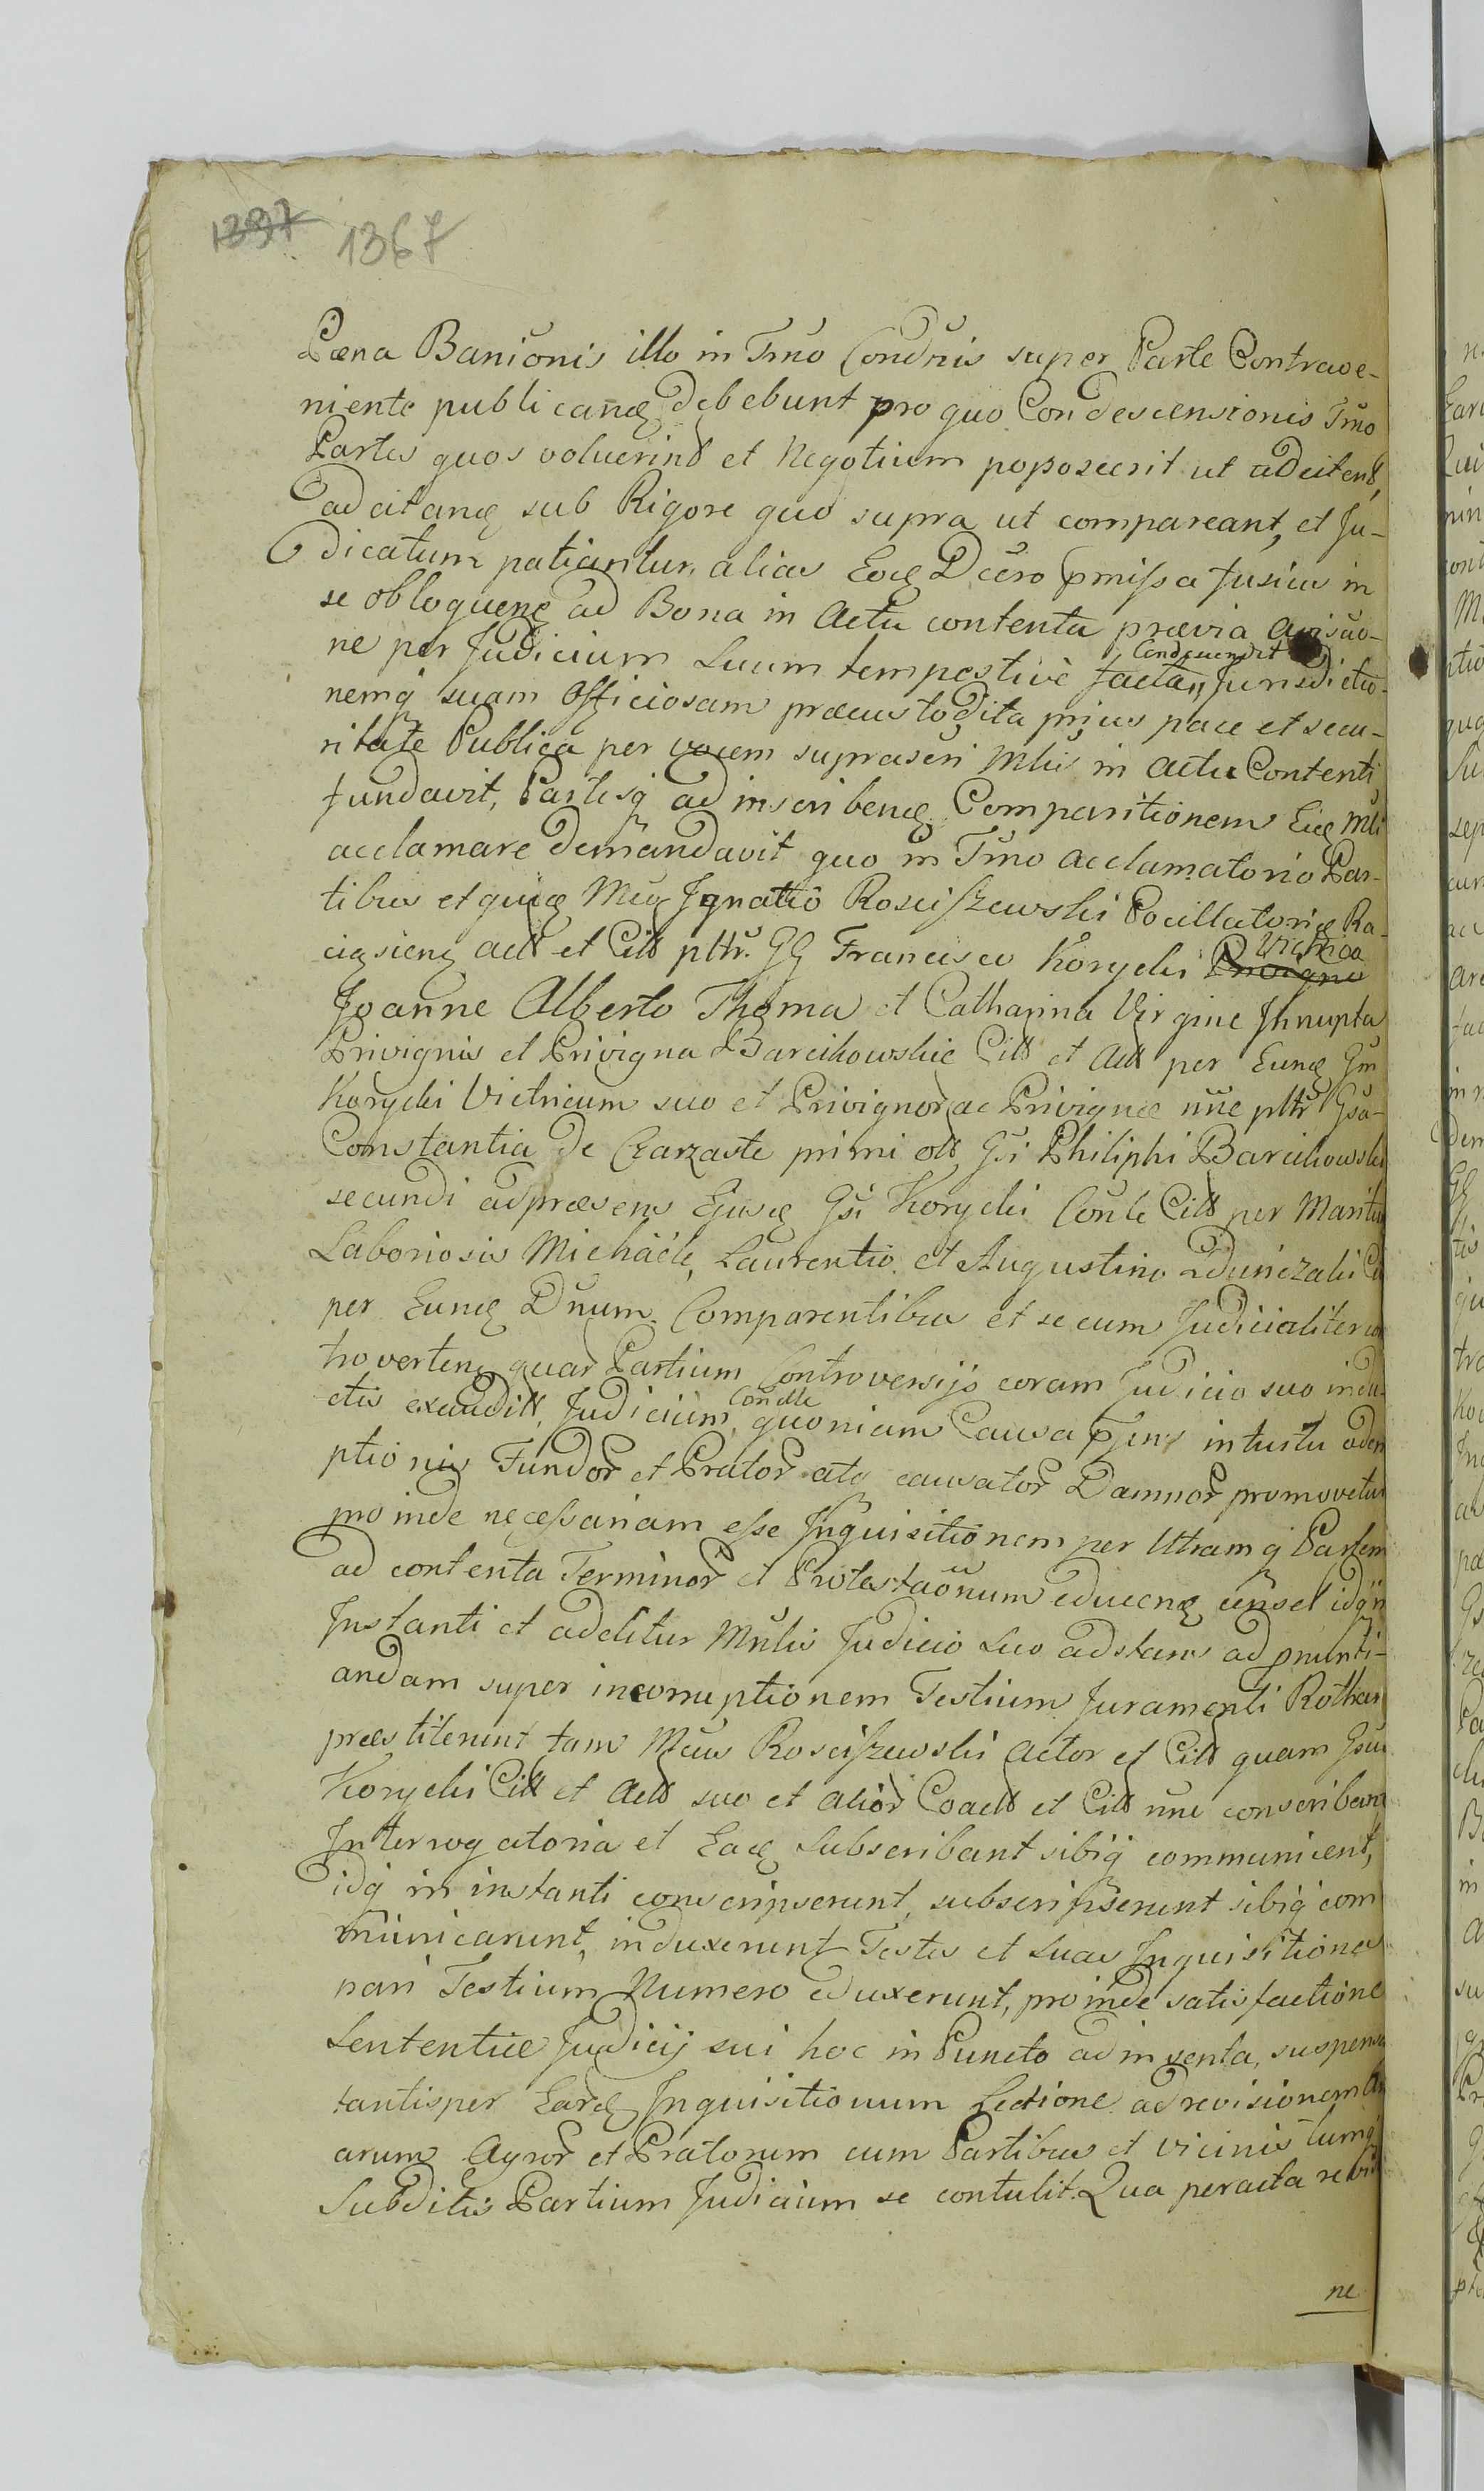 1337 1367
Pœna Banionis illo in Tmo Condnis super Parte Contrave-
niente publicanđ debebunt pro quo Condescensionis Tmo
Partes quos voluerint et Negotium poposcerit ut adcitent,
adcitanđ sub Rigore quo supra ut compareant, et Ju-
dicatum patiantur, alias Eođ Dcero pmissa fusius in
se obloquenđ ad Bona in Actu contenta prævia
ne per Judicium Suum tempestivè facta Condescendit Jurisdictio-
nemq suam Officiosam præcustodita prius pace et secu-
ritate Publica per vocem suprascri Mlis in Actu Contenti
fundavit, Partesq ad inscribenđ Comparitionem Eiđ Mli
acclamare demandavit quo in Tmo acclamatorio Par-
tibus et quiđ Mco Ignatio Rosciszewski Pocillatoriđ Ra-
ciąsienđ Act et Cit pltr. GG Francisco Korycki Privigno Vitrico
Joanne Alberto Thoma et Catharina Virgine Innupta
Privignis et Privigna Barcikowskie Cit et Act per Eunđ Gm
Korycki Victricum suo et Privignor ac Privignæ nne pltr Gsa
Constantia de Czarzaste primi olt Gsi Philiphi Barcikowski
secundi adpræsens Ejusđ Gsi Korycki Conte Cit per Maritu
Laboriosis Michaële, Laurentio et Augustino Ci
per Eunđ Dnum Comparentibus et secum Judicialiter con
trovertenđ quar Partium Controversijs coram Judicio suo indu
ctis exaudit, Judicium Condle quoniam Causa pns intuitu adem
ptionis Fundor et Prator atq causator Damnor promovetur
proinde necessariam esse Inquisitionem per Utramq Partem
ad contenta Terminor et Protestaōnum educenđ censet idq in
Instanti et adcitur Mnlis Judicio Suo adstans ad pnunti-
andam super incorruptionem Testium Juramenti Rotham
præstiterunt tam Mcus Rosciszewski Actor et Cit quam Gsus
Korycki Cit et Act suo et alior Coact et Cit nne conscribant
Interrogatoria et Eađ Subscribant sibiq communicent,
idq in instanti conscripserunt, subscripserunt sibiq com
municarunt, induxerunt Testes et Suas Inquisitiones
pari Testium Numero eduxerunt, proinde satisfactione
Sententiæ Judicij sui hoc in Puncto adinventa, suspensa
tantisper Earđ Inquisitionum Lectione ad revisionem
arum Agror et Pratorum cum Partibus et vicinis tumq
Subditis Partium Judicium se contulit. Qua peracta revisi
ne